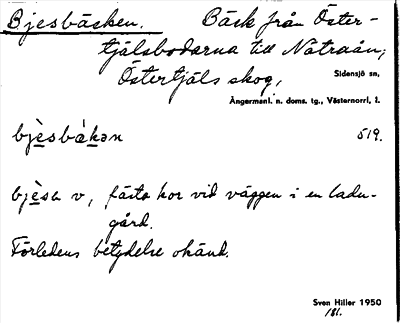 Bjesbäcken. Bäck från Öster-
tjälsbodarna till Nätraån;
Östertjäls skog,
Sidensjö sn,
Ångermanl. n. doms. tg., Västernorrl. l.
bjèsbàkən 519.
bjèsa v, fästa kor vid väggen i en ladu-
gård.
Förledens betydelse okänd.
Sven Hiller 1950
181.